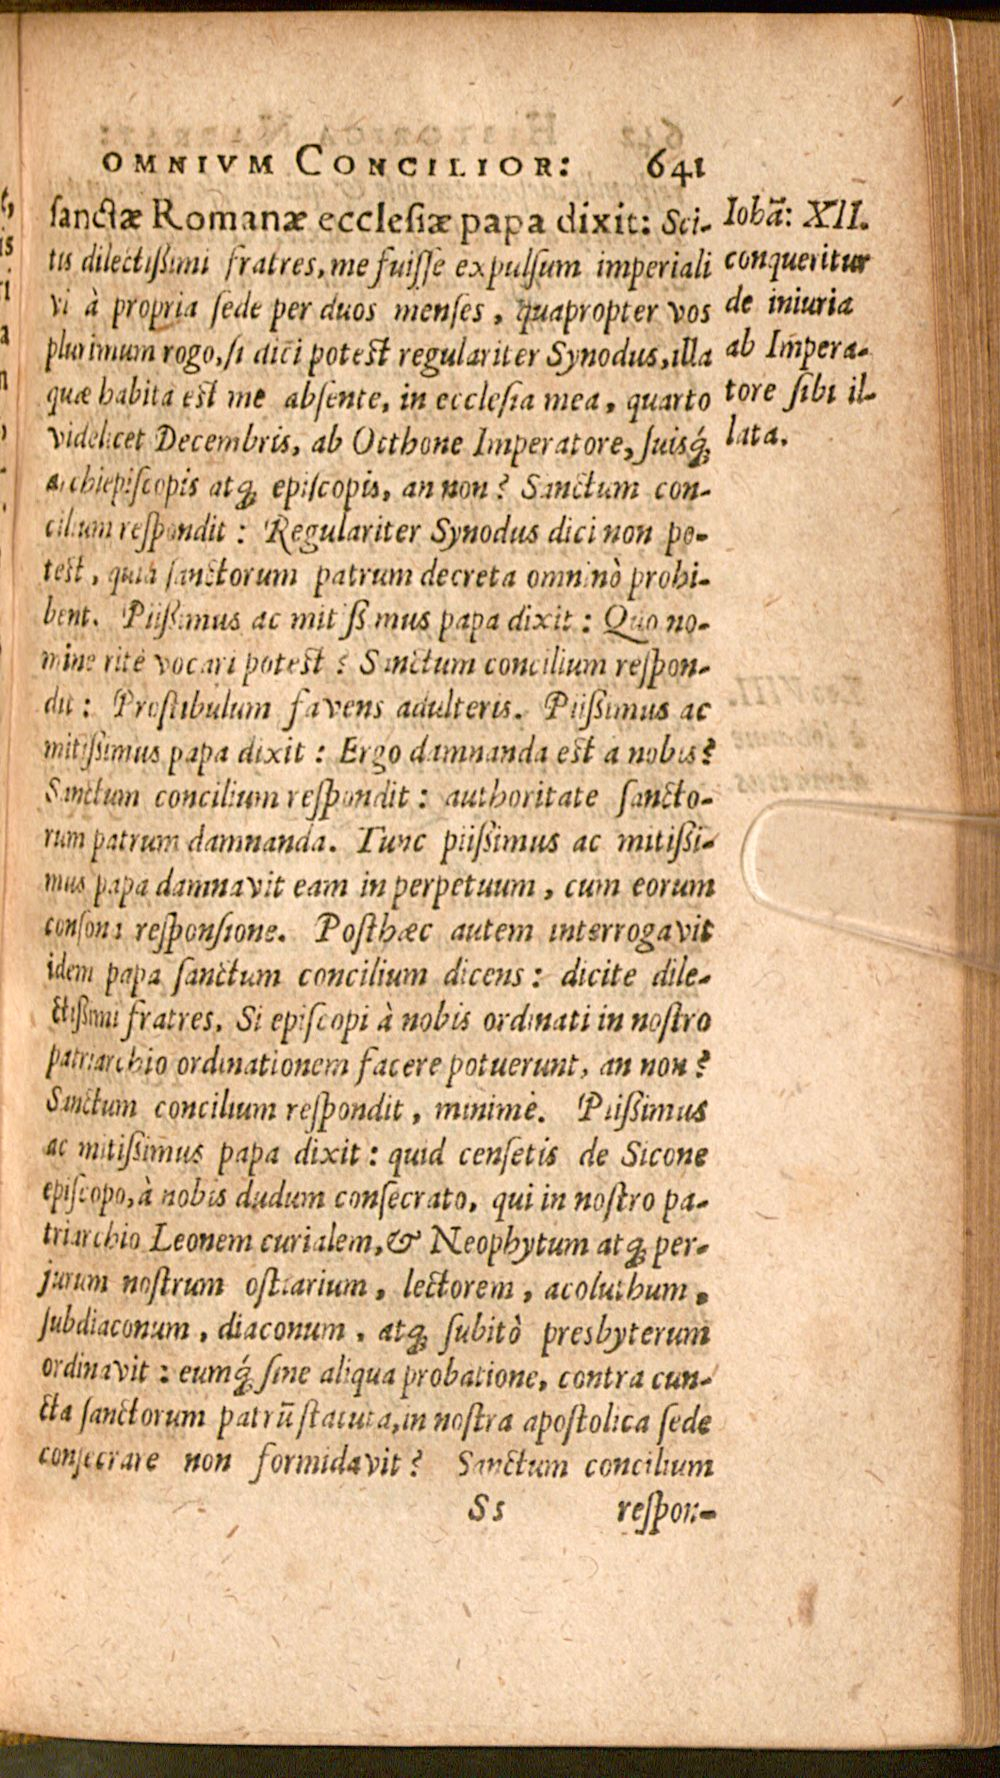 OMNIVM CONCILIOR: 641
sanctæ Romanæ ecclesiæ papa dixit: Sci-
tis dilectißimi fratres, me fuisse expulsum imperiali
vi à propria sede per duos menses, quapropter vos
plurimum rogo, si dici potest regulariter Synodus, illa
quæ habita est me absente, in ecclesia mea, quarto
videlicet Decembris, ab Otthone Imperatore, suisq́;
archiepiscopis atq; episcopis, an non? Sanctum con-
cilium respondit: Regulariter Synodus dici non po-
test, quia sanctorum patrum decreta omninò prohi-
bent. Piißimus ac mitißimus papa dixit: Quo no-
mine ritè vocari potest? Sanctum concilium respon-
dit: Prostibulum favens adulteris. Piißimus ac
mitißimus papa dixit: Ergo damnanda est a nobis?
Sanctum concilium respondit: authoritate sancto-
rum patrum damnanda. Tunc piißimus ac mitißi-
mus papa damnavit eam in perpetuum, cum eorum
consona responsione. Posthæc autem interrogavit
idem papa sanctum concilium dicens: dicite dile-
ctißimi fratres. Si episcopi à nobis ordinati in nostro
patriarchio ordinationem facere potuerunt, an non?
Sanctum concilium respondit, minimè. Piißimus
ac mitißimus papa dixit: quid censetis de Sicone
episcopo, à nobis dudum consecrato, qui in nostro pa-
triarchio Leonem curialem, & Neophytum atq; per-
jurum nostrum ostiarium, lectorem, acoluthum,
subdiaconum, diaconum, atq; subitò presbyterum
ordinavit: eumq́; sine aliqua probatione, contra cun-
cta sanctorum patrū statuta, in nostra apostolica sede
consecrare non formidavit? Sanctum concilium
Ss respon-
Iohā: XII.
conqueritur
de iniuria
ab Impera-
tore sibi il-
lata.